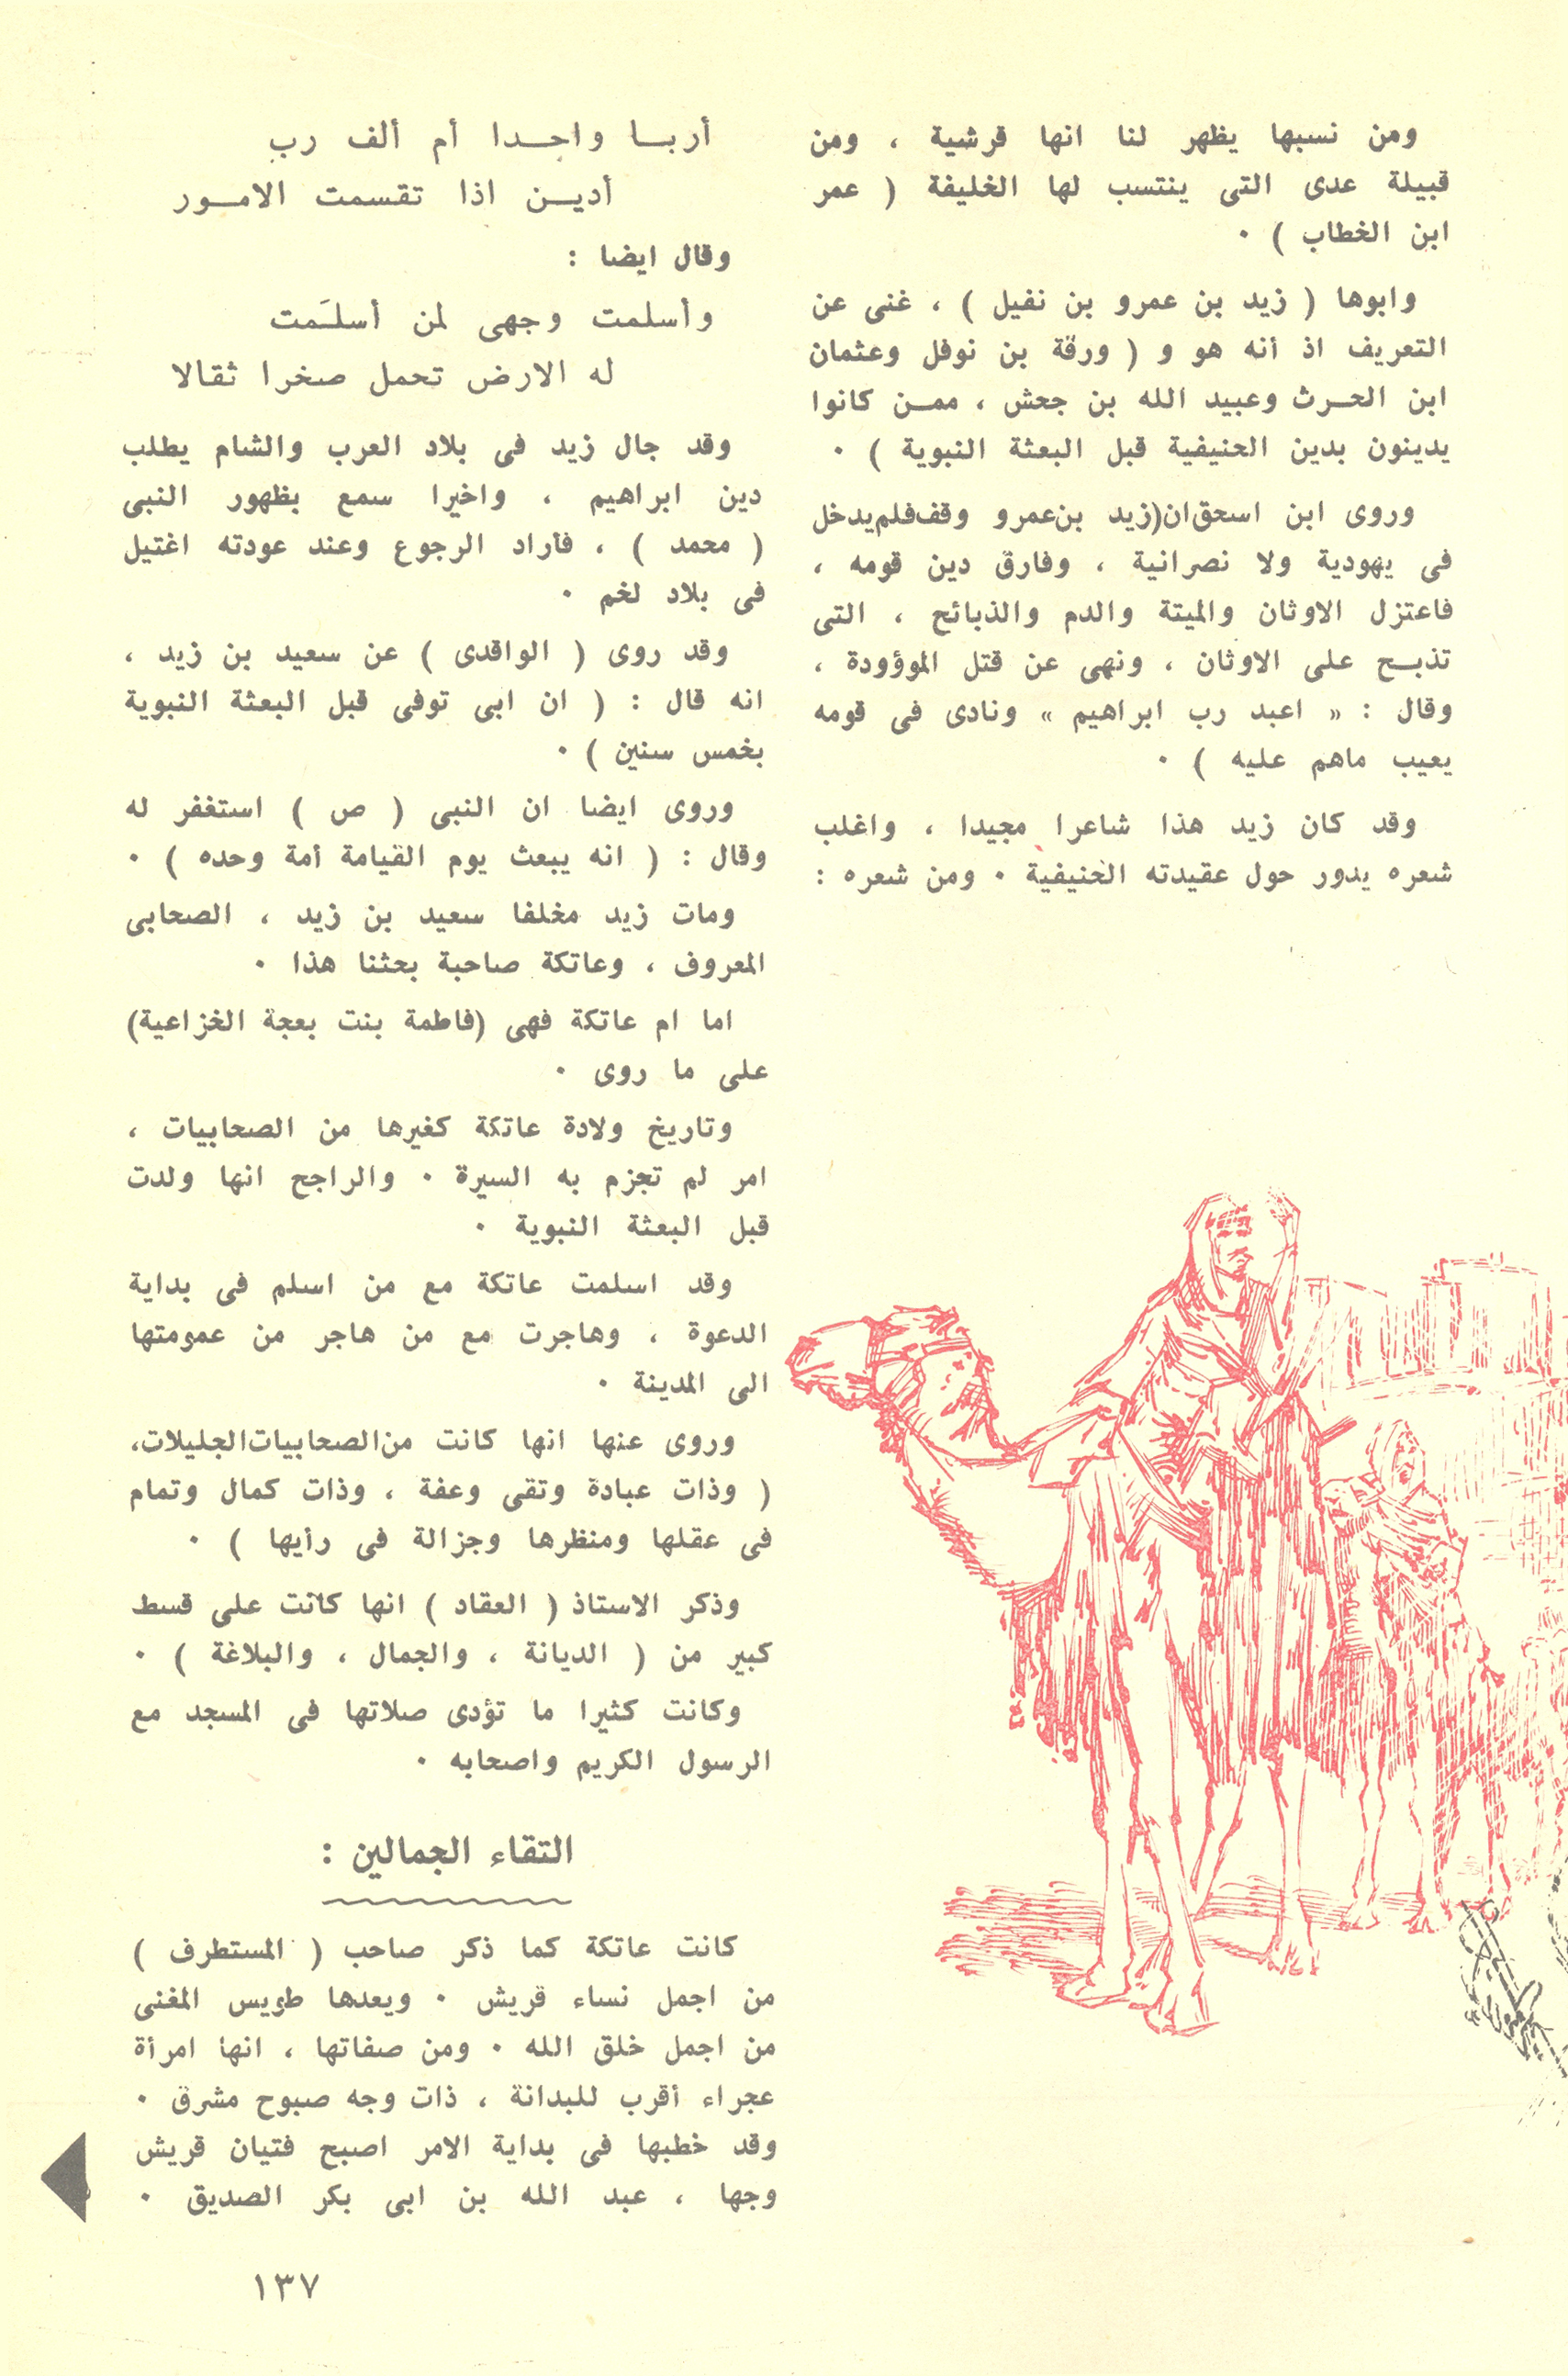 ومن نسبها يظهر لنا انها قرشية ، ومن
قبيلة عدى التى ينتسب لها الخليفة ( عمر
ابن الخطاب ) ٠
وابوها ( زيد بن عمرو بن نفيل ) ، غنى عن
التعريف اذ أنه هو و ( ورقة بن نوفل وعثمان
ابن الحــرث وعبيد الله بن جحش ، ممــن كانوا
يدينون بدين الحنيفية قبل البعثة النبوية ) ٠
وروى ابن اسحق ان (زيد بن عمرو وقف فلم يدخل
فى يهودية ولا نصرانية ، وفارق دين قومه ،
فاعتزل الاوثان والميتة والدم والذبائح ، التى
تذبــح على الاوثان ، ونهى عن قتل الموؤودة ،
وقال : « اعبد رب ابراهيم » ونادى فى قومه
يعيب ماهم عليه ) ٠
وقد كان زيد هذا شاعرا مجيدا ، واغلب
شعره يدور حول عقيدته الحنيفية ٠ ومن شعره :
أربــا واحــدا أم ألف رب
أديــن اذا تقسمت الامــور
وقال ايضا :
وأسلمت وجهى لمن أسلـَمت
له الارض تحمل صخرا ثقالا
وقد جال زيد فى بلاد العرب والشام يطلب
دين ابراهيم ، واخيرا سمع بظهور النبى
( محمد ) ، فأراد الرجوع وعند عودته اغتيل
فى بلاد لخم ٠
وقد روى ( الواقدى ) عن سعيد بن زيد ،
انه قال : ( ان ابى توفى قبل البعثة النبوية
بخمس سنين ) ٠
وروى ايضا ان النبى ( ص ) استغفر له
وقال : ( انه يبعث يوم القيامة أمة وحده ) ٠
ومات زيد مخلفا سعيد بن زيد ، الصحابى
المعروف ، وعاتكة صاحبة بحثنا هذا ٠
اما ام عاتكة فهى (فاطمة بنت بعجة الخزاعية)
على ما روى ٠
وتاريخ ولادة عاتكة كغيرها من الصحابيات ،
امر لم تجزم به السيرة ٠ والراجح انها ولدت
قبل البعثة النبوية ٠
وقد اسلمت عاتكة مع من اسلم فى بداية
الدعوة ، وهاجرت مع من هاجر من عمومتها
الى المدينة ٠
وروى عنها انها كانت من الصحابيات الجليلات،
( وذات عبادة وتقى وعفة ، وذات كمال وتمام
فى عقلها ومنظرها وجزالة فى رأيها ) ٠
وذكر الاستاذ ( العقاد ) انها كانت على قسط
كبير من ( الديانة ، والجمال ، والبلاغة ) ٠
وكانت كثيرا ما تؤدى صلاتها فى المسجد مع
الرسول الكريم واصحابه ٠
التقاء الجمالين :
كانت عاتكة كما ذكر صاحب ( المستطرف )
من اجمل نساء قريش ٠ ويعدها طويس المغنى
من اجمل خلق الله ٠ ومن صفاتها ، انها امرأة
عجراء أقرب للبدانة ، ذات وجه صبوح مشرق ٠
وقد خطبها فى بداية الامر اصبح فتيان قريش
وجها ، عبد الله بن ابى بكر الصديق ٠
١٣٧